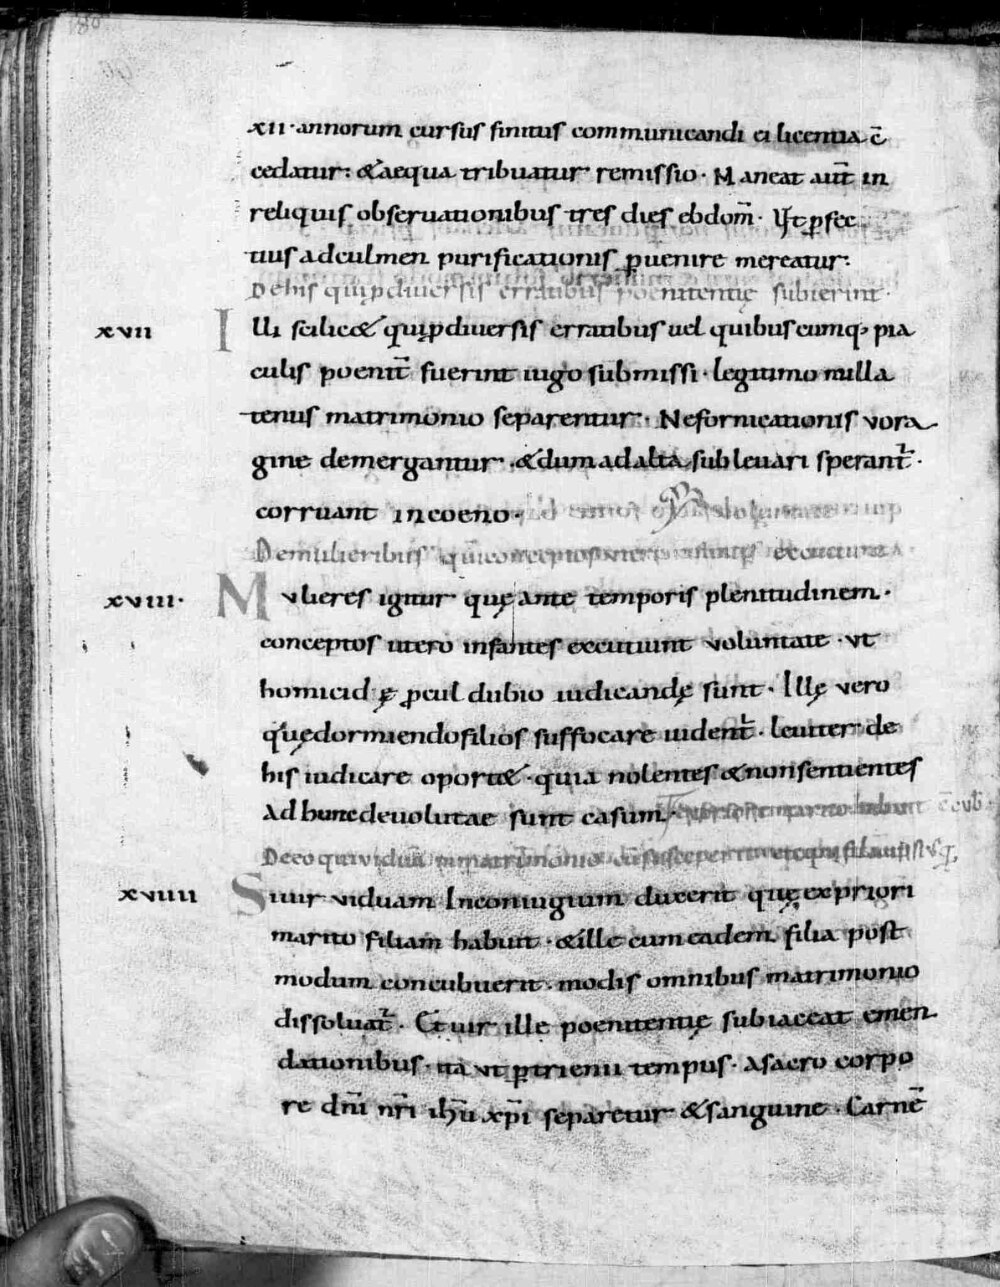 XII· annorum cursus finitus communicandi ei licentia c̄
cedatur: & aequa tribuatur remissio· Maneat aut̄ in
reliquis obseruationibus tres dies ebdom̄· Ut ꝑfec
tius ad culmen purificationis ꝑuenire mereatur:
De his qui ꝓ diuersis erratibus poenitentię subierint·
XVII
Illi scilic& qui ꝓ diuersis erratibus uel quibuscumq; pia
culis poenit̄ fuerint iugo submissi· legitimo nulla
tenus matrimonio separentur· Ne fornicationis vora
gine demergantur· & dum ad alta subleuari sperant̄·
corruant in coeno·
De mulieribus excutiunt·
XVIII·
Mulieres igitur quę ante temporis plenitudinem·
conceptos utero infantes excutiunt voluntate· vt
homicidę ꝓcul dubio iudicandę sunt· Illę vero
quę dormiendo filios suffocare uident̄· leuiter de
his iudicare oport&· quia nolentes & non sentientes
ad hunc deuolutae sunt casum·
De eo qui viduā in matrimonio
XVIIII
Si uir viduam In coniugium duxerit quę ex priori
marito filiam habuit· & ille cum eadem filia post
modum concubuerit· modis omnibus matrimonio
dissoluat̄· Et uir ille poenitentię subiaceat emen
dationibus· ita vt ꝑ triennii tempus· a sacro corpo
re dn̄i nr̄i ihū xp̄i separetur & sanguine· Carnē